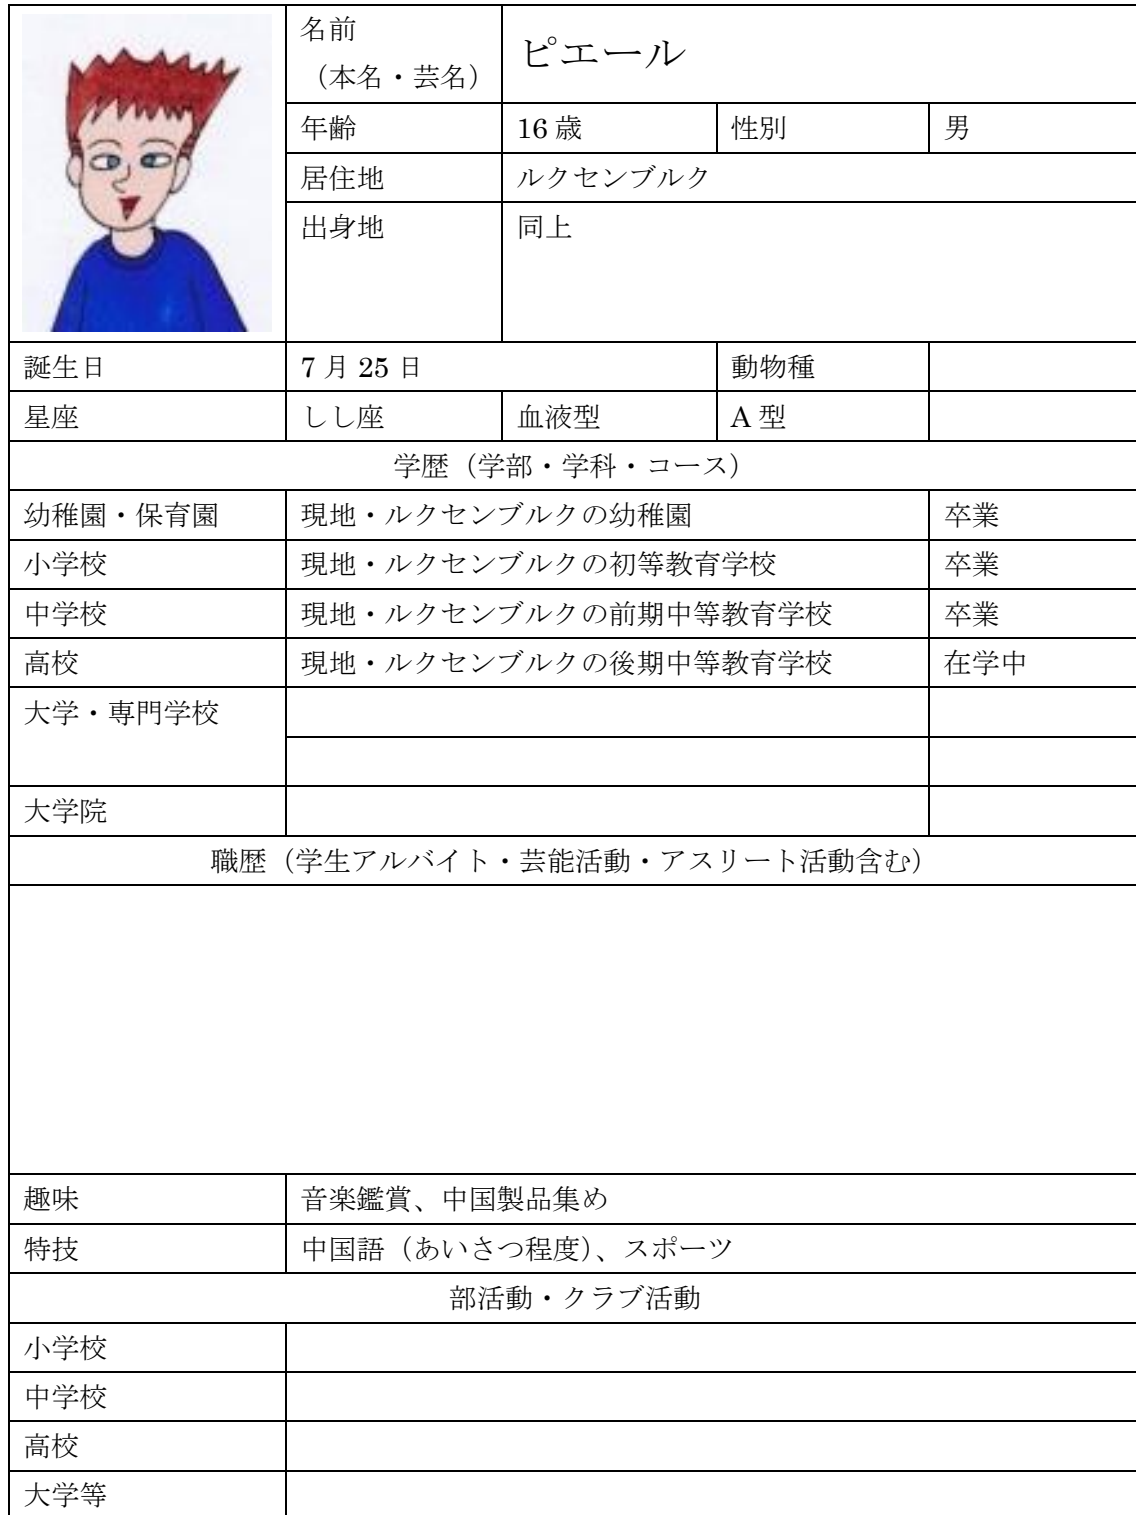 名前
（本名・芸名）
ピエール
年齢 16歳 性別 男
居住地 ルクセンブルク
出身地 同上
誕生日 7月25日 動物種
星座 しし座 血液型 A型
学歴（学部・学科・コース）
幼稚園・保育園 現地・ルクセンブルクの幼稚園 卒業
小学校 現地・ルクセンブルクの初等教育学校 卒業
中学校 現地・ルクセンブルクの前期中等教育学校 卒業
高校 現地・ルクセンブルクの後期中等教育学校 在学中
大学・専門学校
大学院
職歴（学生アルバイト・芸能活動・アスリート活動含む）
趣味 音楽鑑賞、中国製品集め
特技 中国語（あいさつ程度）、スポーツ
部活動・クラブ活動
小学校
中学校
高校
大学等